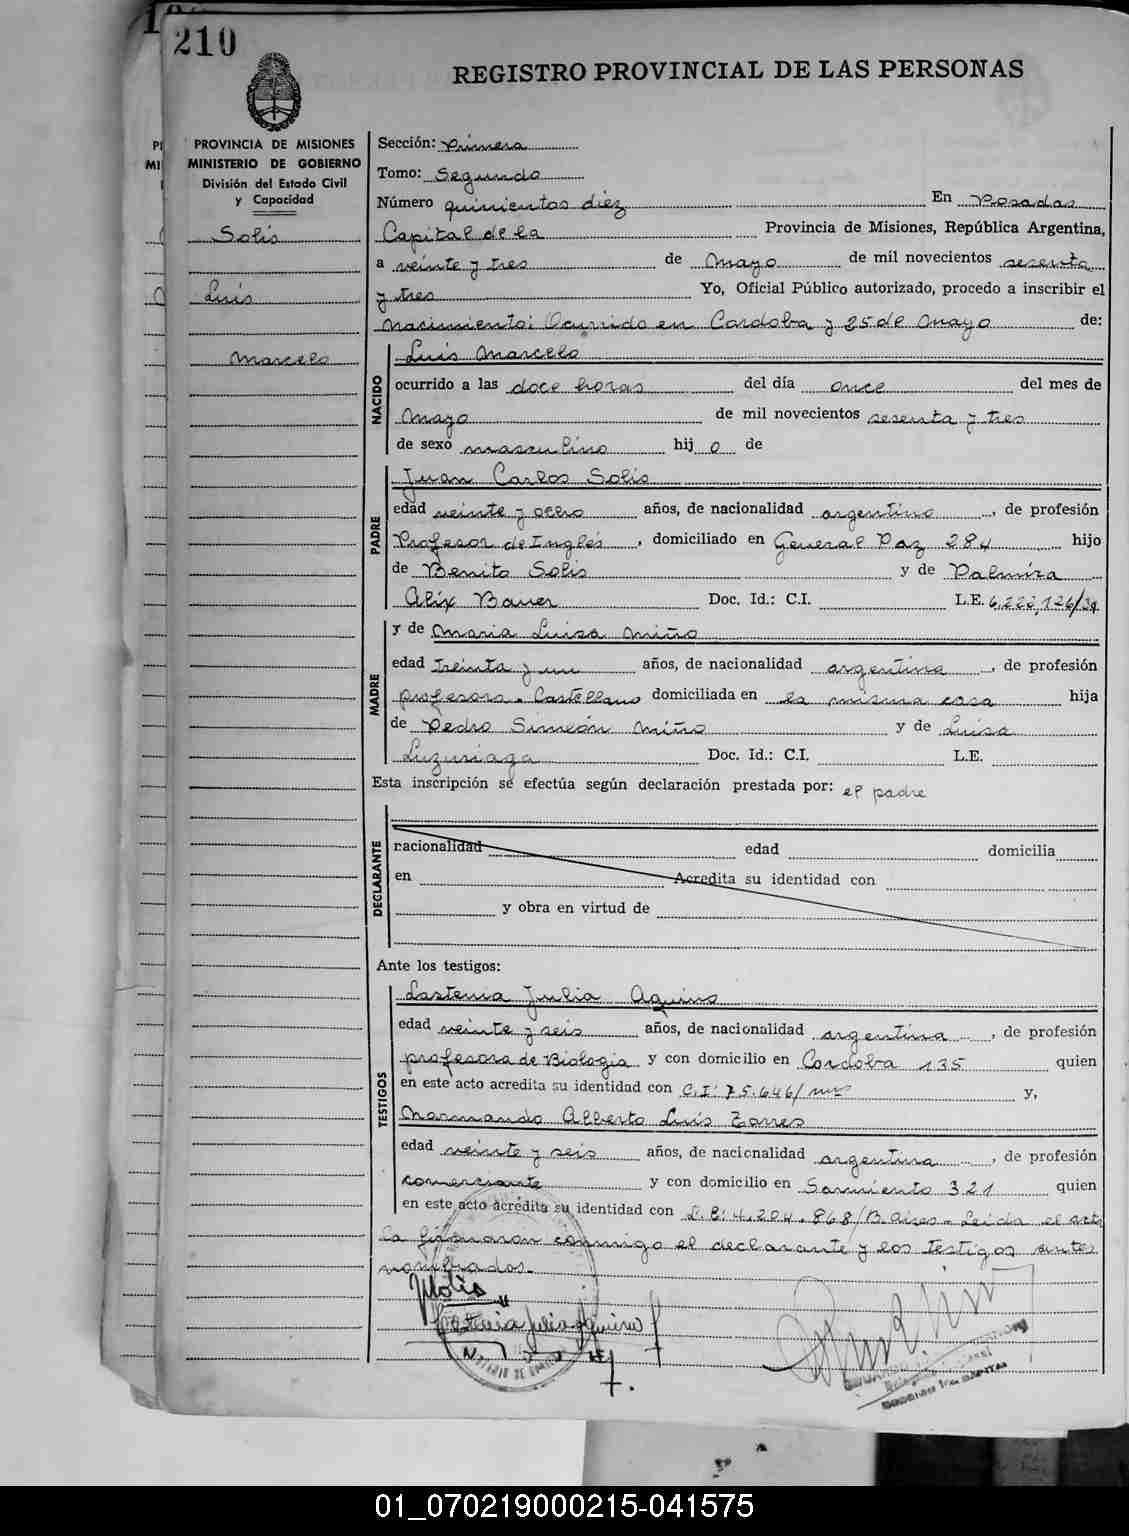 210
REGISTRO PROVINCIAL DE LAS PERSONAS
PROVINCIA DE MISIONES
MINISTERIO DE GOBIERNO
División del Estado Civil
y Capacidad
Solis
Luis
Marcelo
Sección: Primera
Tomo: Segundo
Número quinientos diez En Posadas
Capital de la Provincia de Misiones, República Argentina,
a veinte y tres de Mayo de mil novecientos sesenta
y tres Yo, Oficial Público autorizado, procedo a inscribir el
nacimiento: Ocurrido en Cordoba y 25 de Mayo de:
NACIDO
Luis Marcelo
ocurrido a las doce horas del día once del mes de
Mayo de mil novecientos sesenta y tres
de sexo masculino hij o de
PADRE
Juan Carlos Solis
edad veinte y ocho años, de nacionalidad argentino, de profesión
Profesor de Inglés, domiciliado en General Paz 284 hijo
de Benito Solis y de Palmira
Alix Bauer Doc. Id.: C.I. L.E. 6,222,126/
MADRE
y de Maria Luisa Miño
edad treinta y un años, de nacionalidad argentina, de profesión
profesora - Castellano domiciliada en la misma casa hija
de Pedro Simeón Miño y de Luisa
Luzuriaga Doc. Id.: C.I. L.E.
Esta inscripción se efectúa según declaración prestada por: el padre
DECLARANTE
nacionalidad edad domicilia
en Acredita su identidad con
y obra en virtud de
Ante los testigos:
TESTIGOS
Lastenia Julia Aquino
edad veinte y seis años, de nacionalidad argentina, de profesión
profesora de Biologia y con domicilio en Cordoba 135 quien
en este acto acredita su identidad con C.I: 75.646/ y,
Normando Alberto Luis Torres
edad veinte y seis años, de nacionalidad argentina, de profesión
comerciante y con domicilio en Sarmiento 321 quien
en este acto acredita su identidad con L.E: 4.204.868/B. Aires - Leida el acta
la firmaron conmigo el declarante y los testigos antes
nombrados.-
Solis
Lastenia Julia Aquino
01_070219000215-041575